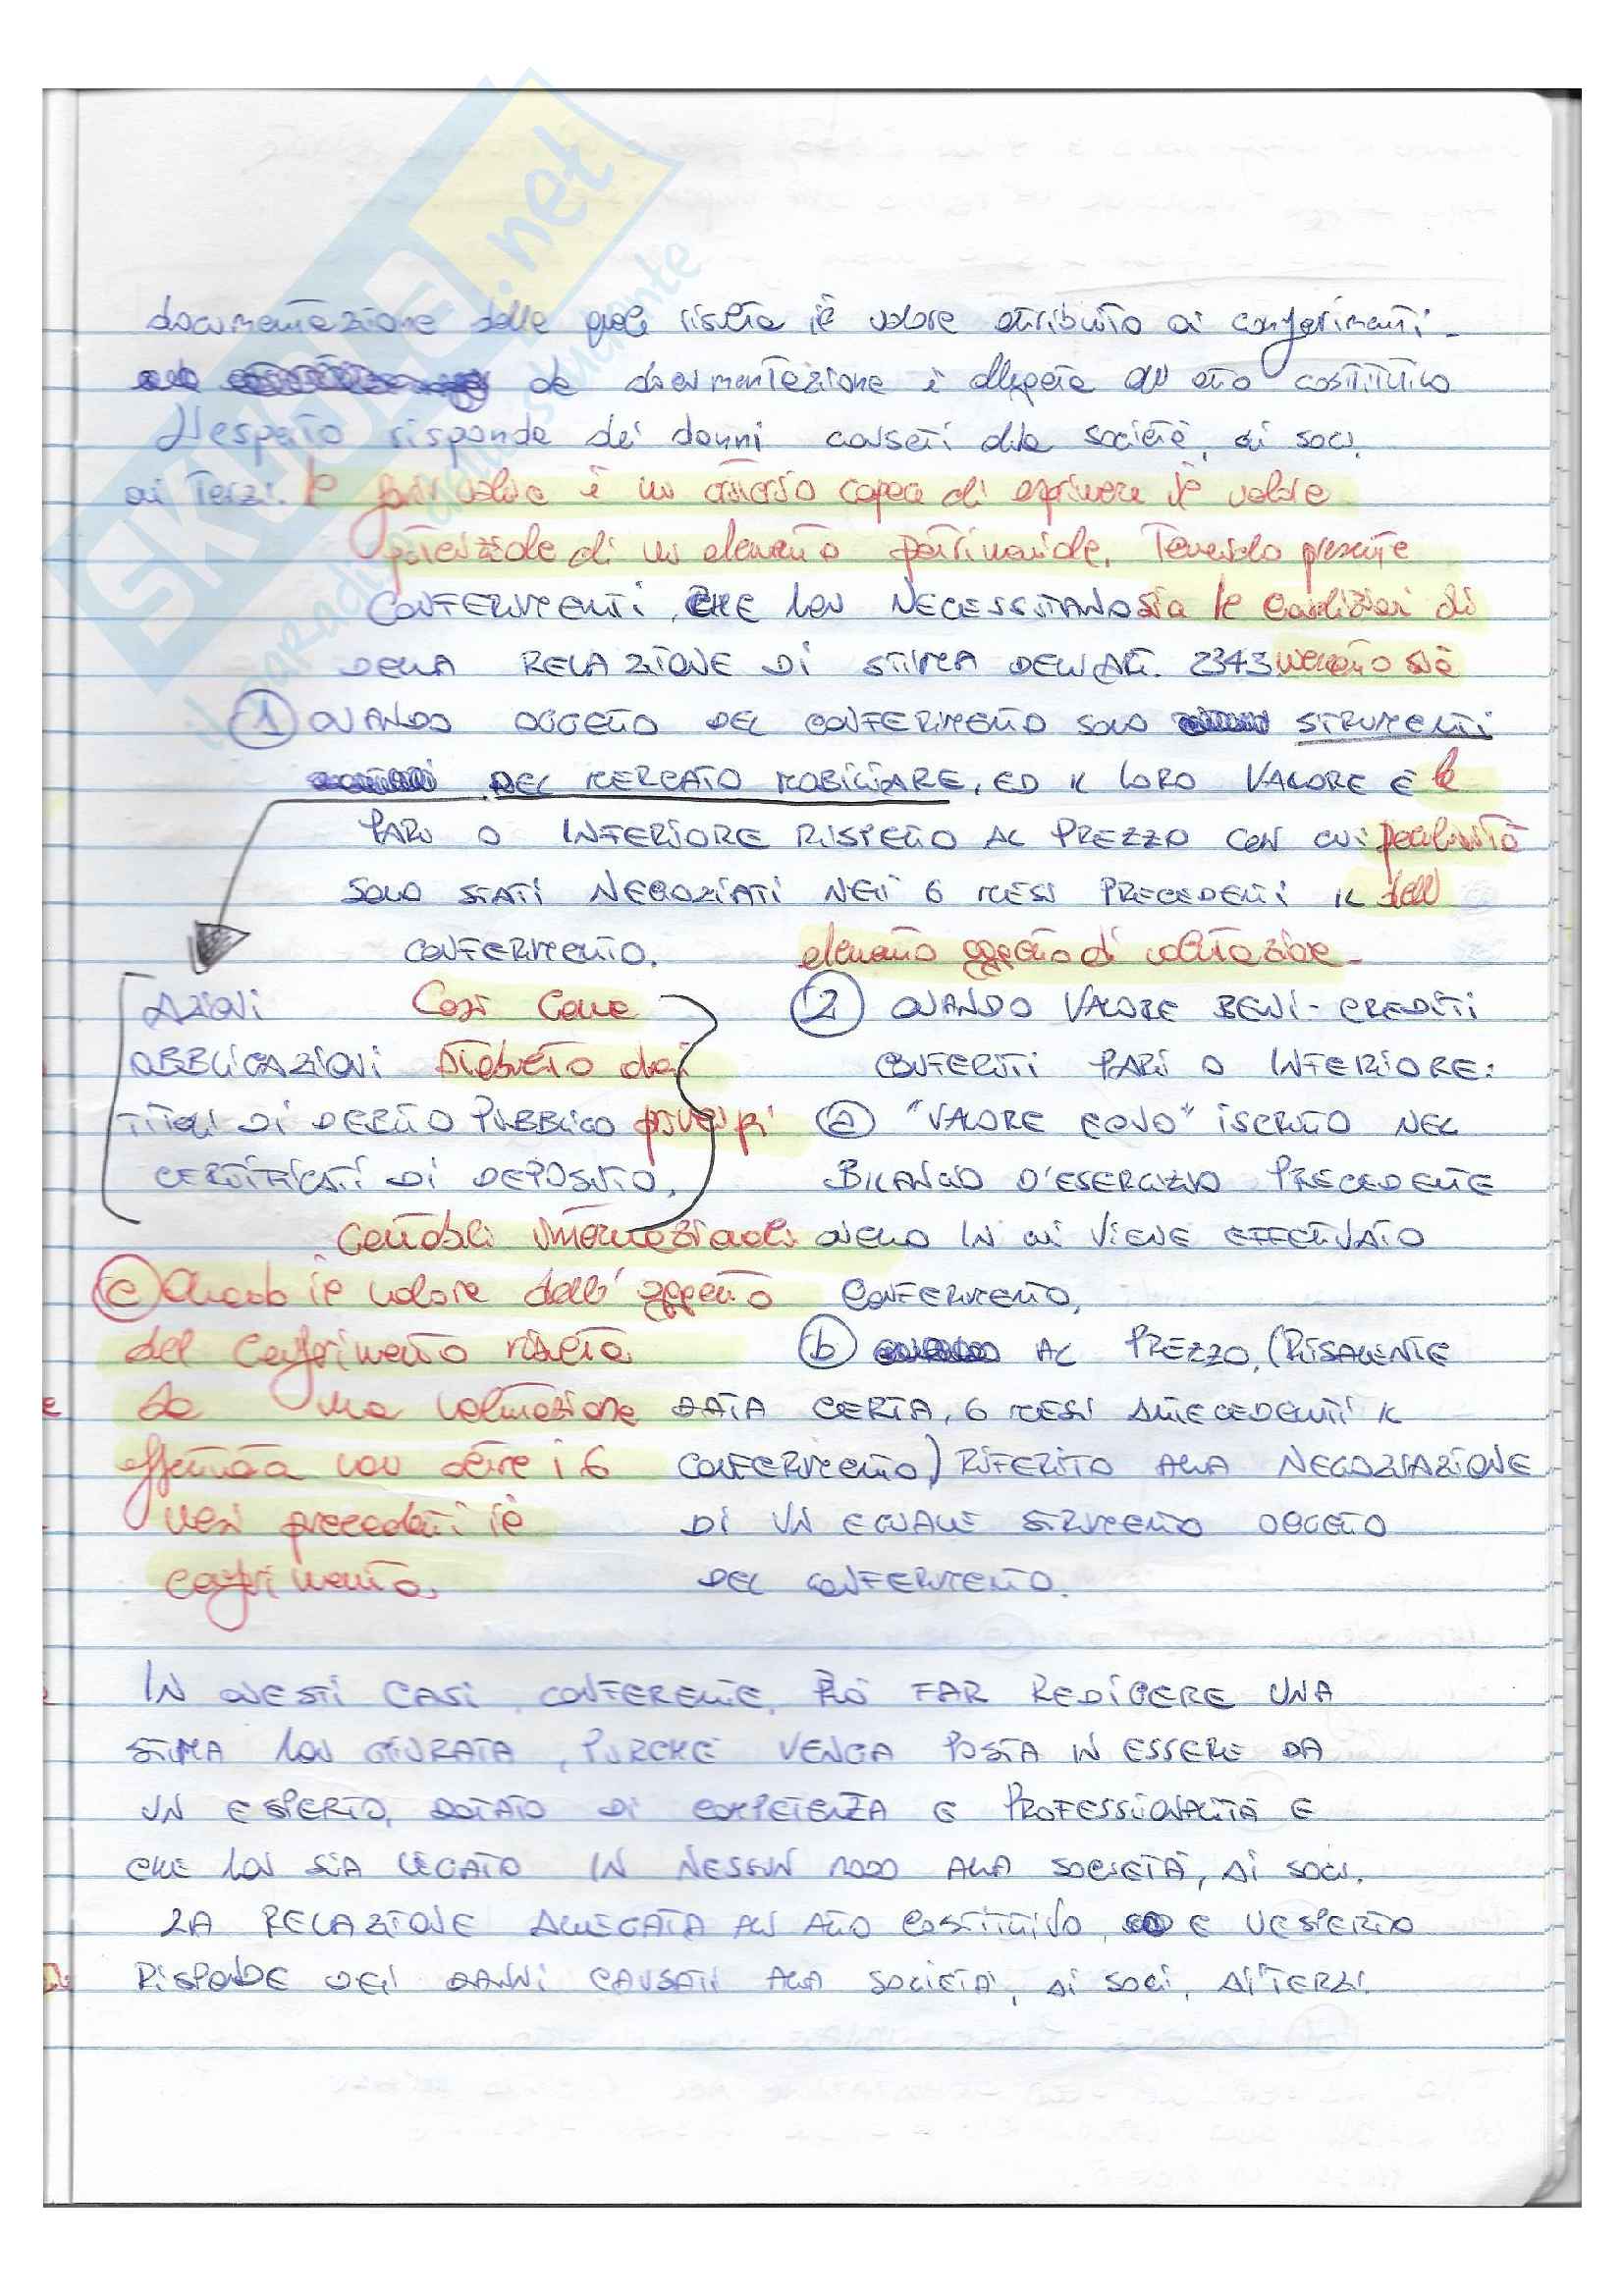 documentazione dalla quale risulta il valore attribuito ai conferimenti.
la documentazione è allegata all'atto costitutivo
L'esperto risponde dei danni causati alla società, ai soci,
ai terzi. Il fair value è un criterio capace di esprimere il valore
potenziale di un elemento patrimoniale, Tenendo presente
CONFERIMENTI, CHE NON NECESSITANO sia le condizioni di
DELLA RELAZIONE DI STIMA DELL'ART. 2343 mercato sia
1 QUANDO OGGETTO DEL CONFERIMENTO SONO STRUMENTI
DEL MERCATO MOBILIARE, ED IL LORO VALORE È le
PARI O INFERIORE RISPETTO AL PREZZO CON CUI peculiarità
SONO STATI NEGOZIATI NEI 6 MESI PRECEDENTI IL dell'
CONFERIMENTO. elemento oggetto di valutazione.
AZIONI Così Come 2 QUANDO VALORE BENI-CREDITI
OBBLIGAZIONI stabilito dai CONFERITI PARI O INFERIORE:
TITOLI DI DEBITO PUBBLICO principi a "VALORE EQUO" ISCRITTO NEL
CERTIFICATI DI DEPOSITO, BILANCIO D'ESERCIZIO PRECEDENTE
contabili internazionali QUELLO IN CUI VIENE EFFETTUATO
c Quando il valore dell'oggetto CONFERIMENTO,
del conferimento risulta b AL PREZZO, (RISALENTE
da una valutazione DATA CERTA, 6 MESI ANTECEDENTI IL
effettuata non oltre i 6 CONFERIMENTO) RIFERITO ALLA NEGOZIAZIONE
mesi precedenti il DI UN EGUALE STRUMENTO OGGETTO
conferimento. DEL CONFERIMENTO.
IN QUESTI CASI, CONFERENTE, PUÒ FAR REDIGERE UNA
STIMA NON GIURATA, PURCHÉ VENGA POSTA IN ESSERE DA
UN ESPERTO, DOTATO DI COMPETENZA E PROFESSIONALITÀ E
CHE NON SIA LEGATO IN NESSUN MODO ALLA SOCIETÀ, AI SOCI.
LA RELAZIONE ALLEGATA ALL'ATTO COSTITUTIVO, E L'ESPERTO
RISPONDE DEI DANNI CAUSATI ALLA SOCIETÀ, AI SOCI, AI TERZI.
SKUOLA.net
il paradiso dello studente